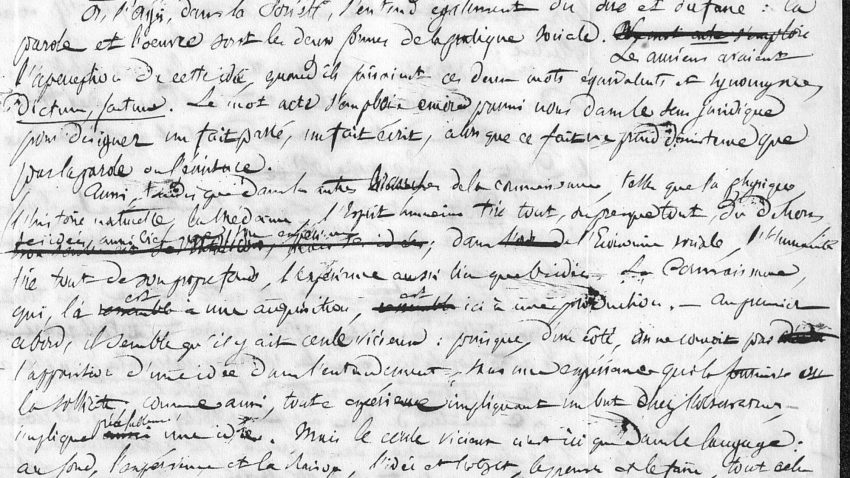 Or, l'agir, dans la Société, s'entend également du dire et du faire : la
parole et l'œuvre sont les deux formes de la pratique sociale.
Les anciens avaient
l'aperception de cette idée, quand ils faisaient ces deux mots équivalents et synonymes,
Dictum, factum. Le mot acte s'emploie encore parmi nous dans le sens juridique
pour désigner un fait passé, un fait écrit, alors que ce fait ne prend d'existence que
par la parole ou l'écriture.
Aussi, tandis que dans les autres branches de la connaissance, telles que la physique,
l'histoire naturelle, la médecine, l'Esprit humain tire tout, ou presque tout, du dehors,
ses idées aussi bien que son expérience
; dans l'Economie sociale, l'Humanité
tire tout de son propre fond, l'Expérience aussi bien que l'idée. La Connaissance,
est est
qui, là a une acquisition, ici à une production. — Au premier
abord, il semble qu'il y ait cercle vicieux : puisque, d'un côté, on ne conçoit pas
l'apparition d'une idée dans l'entendement, sans une expérience qui la
la sollicite comme aussi, toute expérience impliquant un but chez l'observateur
implique une idée. Mais le cercle vicieux n'est ici que dans le langage :
au fond, l'expérience et la raison, l'idée et l'objet, le penser et le faire, tout cela